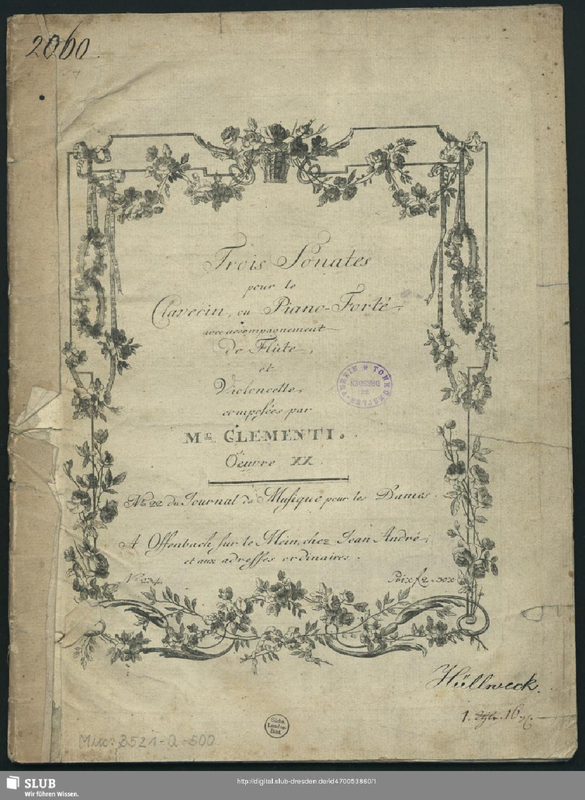 2060.
Trois Sonates
pour le
Clavecin, ou Piano-Forté,
avec accompagnement
de Flûte,
et
Violoncelle,
composées par
Mr. CLEMENTI.
Oeuvre XX.
du Journal de Musique pour les Dames.
A Offenbach, sur le Mein, chez Jean André,
et aux adresses ordinaires.
TONKÜNSTLER-VEREIN
DRESDEN
Hüllweck.
Sächs.
Landes-
Bibl.
SLUB
Wir führen Wissen.
http://digital.slub-dresden.de/id470053860/1